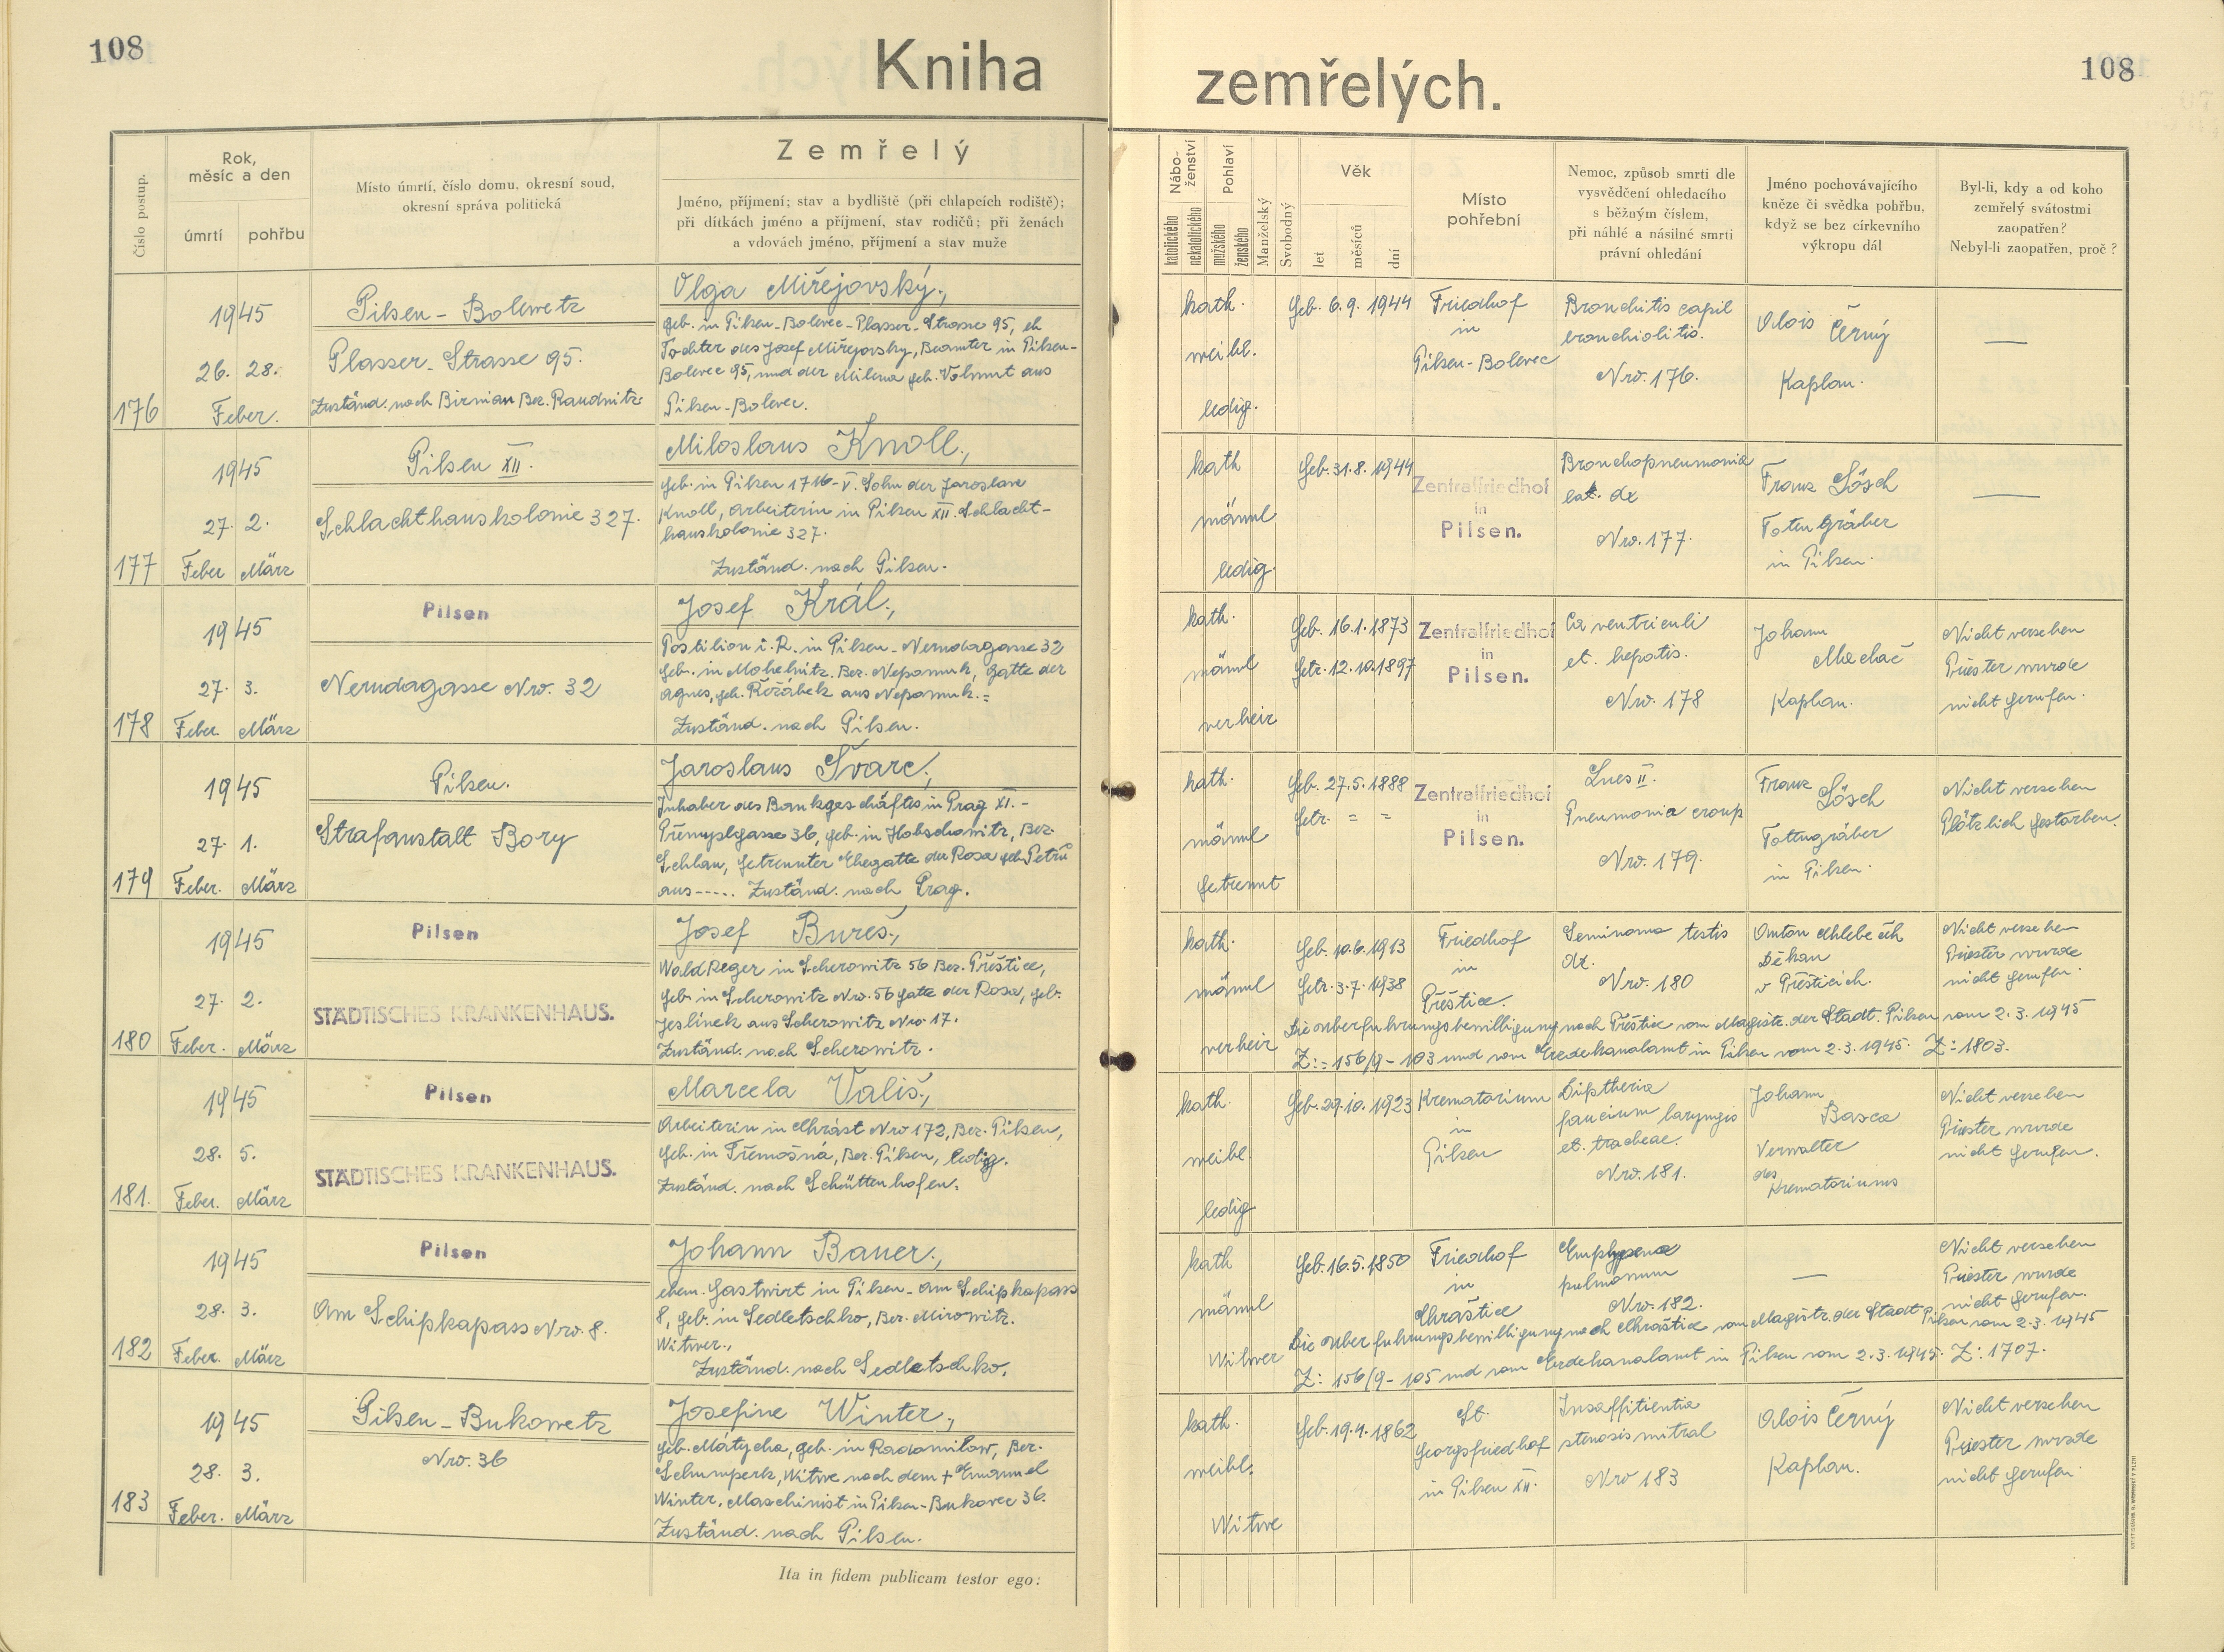 108
Kniha zemřelých.
108
Číslo postup.
Rok, měsíc a den
úmrtí
pohřbu
Místo úmrtí, číslo domu, okresní soud,
okresní správa politická
Zemřelý
Jméno, příjmení; stav a bydliště (při chlapcích rodiště);
při dítkách jméno a příjmení, stav rodičů; při ženách
a vdovách jméno, příjmení a stav muže
Nábo-
ženství
katolického
nekatolického
Pohlaví
mužského
ženského
Manželský
Svobodný
Věk
let
měsíců
dní
Místo
pohřební
Nemoc, způsob smrti dle
vysvědčení ohledacího
s běžným číslem,
při náhlé a násilné smrti
právní ohledání
Jméno pochovávajícího
kněze či svědka pohřbu,
když se bez církevního
výkropu dál
Byl-li, kdy a od koho
zemřelý svátostmi
zaopatřen?
Nebyl-li zaopatřen, proč?
176
1945
26. 28.
Feber.
Pilsen - Bolewetz
Plasser-Strasse 95.
Zuständ. nach Birnian Bez. Raudnitz.
Olga Miřejovský.,
geb. in Pilsen-Bolevec-Plasser-Strasse 95, eh
Tochter des Josef Miřejovský, Beamter in Pilsen-
Bolevec 95, und der Milena geb. Volmut aus
Pilsen-Bolevec.
kath.
weibl.
ledig.
Geb. 6.9.1944
Friedhof
in
Pilsen-Bolevec
Bronchitis capil
bronchiolitis.
Nro. 176.
Alois Černý
Kaplan.
—
177
1945
27. 2.
Feber März
Pilsen XII.
Schlachthauskolonie 327.
Miloslaus Knoll.,
geb. in Pilsen 1716-V. Sohn der Jaroslava
Knoll, Arbeiterin in Pilsen XII. Schlacht-
hauskolonie 327.
Zuständ. nach Pilsen.
kath
männl
ledig.
Geb. 31.8.1944
Zentralfriedhof
in
Pilsen.
Bronchopneumonia
lat. dx
Nro. 177.
Franz Lösch
Totengräber
in Pilsen.
—
178
1945
27. 3.
Feber. März
Pilsen
Nerudagasse Nro. 32
Josef Král.,
Postilion i. R. in Pilsen-Nerudagasse 32
geb. in Mohelnitz. Bez. Nepomuk, Gatte der
Agnes, geb. Řeřábek aus Nepomuk.=
Zuständ. nach Pilsen.
kath.
männl
verheir
Geb. 16.1.1873
Getr. 12.10.1897
Zentralfriedhof
in
Pilsen.
Ca ventriculi
et. hepatis.
Nro. 178
Johann
Machač
Kaplan.
Nicht versehen
Priester wurde
nicht gerufen.
179
1945
27. 1.
Feber. März
Pilsen.
Strafanstalt Bory
Jaroslaus Švarc.,
Inhaber des Bankgeschäftes in Prag XI.-
Přemyslgasse 36, geb. in Hobschowitz, Bez.
Schlan, getrennter Ehegatte der Rosa geb. Petrů
aus----- Zuständ. nach Prag.
kath.
männl
getrennt
Geb. 27.5.1888
Getr. = =
Zentralfriedhof
in
Pilsen.
Lues II.
Pneumonia croup
Nro. 179.
Franz Lösch
Totengräber
in Pilsen.
Nicht versehen
Plötzlich gestorben.
180
1945
27. 2.
Feber. März
Pilsen
STÄDTISCHES KRANKENHAUS.
Josef Bureš.,
Waldheger in Scherowitz 56 Bez. Přeštice,
geb. in Scherowitz Nro. 56 Gatte der Rosa, geb.
Jeslínek aus Scherowitz Nro 17.
Zuständ. nach Scherowitz.
kath.
männl
verheir
Geb. 10.6.1913
Getr. 3.7.1938
Friedhof
in
Přeštice.
Seminoma testis
dx.
Nro. 180
Anton Chlebečík
Děkan
v Přešticích.
Nicht versehen
Priester wurde
nicht gerufen.
Die Überfuhrungsbewilligung nach Přeštice vom Magistr. der Stadt. Pilsen vom 2.3.1945
Z:= 156/9-103 und vom Erzdekanalamt in Pilsen vom 2.3.1945. Z: 1803.
181.
1945
28. 5.
Feber. März
Pilsen
STÄDTISCHES KRANKENHAUS.
Marcela Vališ.,
Arbeiterin in Chrást Nro 172, Bez. Pilsen,
geb. in Třemošná, Bez. Pilsen, ledig.
Zuständ. nach Schüttenhofen.
kath.
weibl.
ledig
Geb. 29.10.1923
Krematorium
in
Pilsen
Diptheria
faucium laryngis
et. tracheae.
Nro. 181.
Johann
Basca
Verwalter
des
Krematoriums
Nicht versehen
Priester wurde
nicht gerufen.
182
1945
28. 3.
Feber. März
Pilsen
Am Schipkapass Nro. 8.
Johann Bauer.,
ehem. Gastwirt in Pilsen-Am Schipkapass
8, geb. in Sedletschko, Bez. Mirowitz.
Witwer.,
Zuständ. nach Sedletschko.
kath
männl
Witwer
Geb. 16.5.1850
Friedhof
in
Chraštice
Emphysema
pulmonum
Nro. 182.
—
Nicht versehen
Priester wurde
nicht gerufen.
Die Überfuhrungsbewilligung nach Chraštice vom Magistr. der Stadt Pilsen vom 2.3.1945
Z: 156/9-105 und vom Erzdekanalamt in Pilsen vom 2.3.1945. Z: 1707.
183
1945
28. 3.
Feber. März
Pilsen-Bukowetz
Nro. 36
Josefine Winter.,
geb. Mátycha, geb. in Radomilow, Bez.
Schumperk, Witwe nach dem + Emanuel
Winter, Maschinist in Pilsen-Bukovec 36.
Zuständ. nach Pilsen.
kath.
weibl.
Witwe
Geb. 19.4.1862
St.
Georgsfriedhof
in Pilsen XII.
Insuffitientia
stenosis mitral
Nro 183
Alois Černý
Kaplan.
Nicht versehen
Priester wurde
nicht gerufen.
Ita in fidem publicam testor ego: